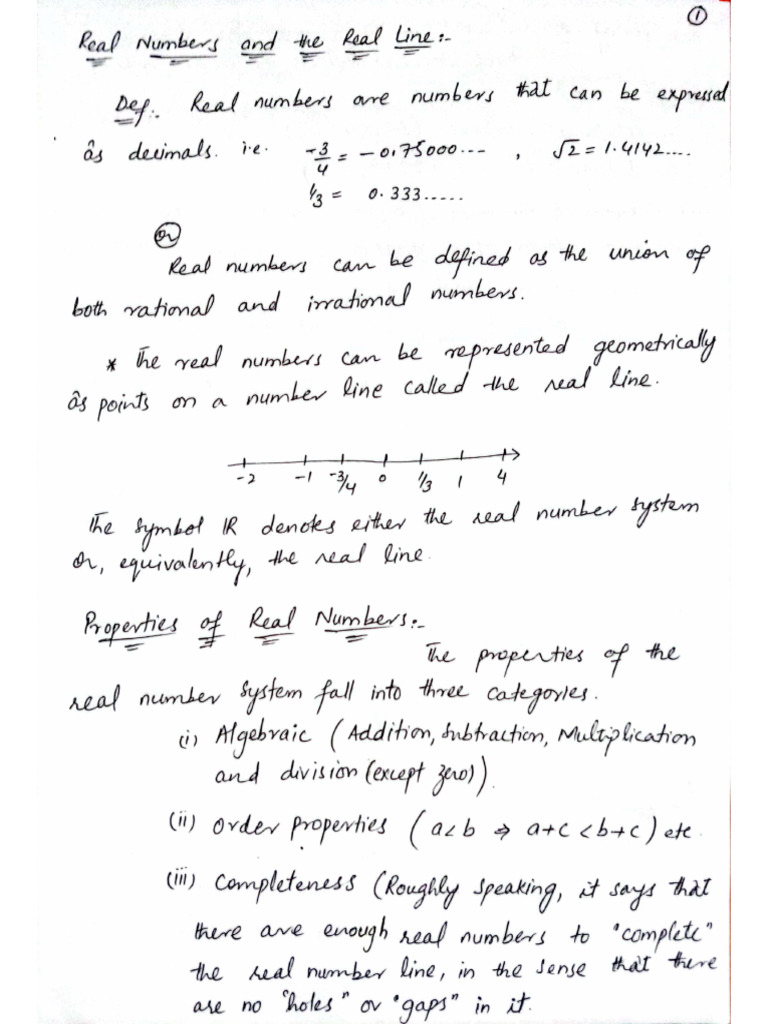 ①
Real Numbers and the Real Line:-
Def:. Real numbers are numbers that can be expressed
as decimals. i.e. -3/4 = -0.75000... , √2 = 1.4142....
1/3 = 0.333.....
or
Real numbers can be defined as the union of
both rational and irrational numbers.
* The real numbers can be represented geometrically
as points on a number line called the real line.
-2 -1 -3/4 0 1/3 1 4
The symbol IR denotes either the real number system
or, equivalently, the real line.
Properties of Real Numbers:-
The properties of the
real number system fall into three categories.
(i) Algebraic (Addition, Subtraction, Multiplication
and division (except zero)).
(ii) Order properties (a<b ⇒ a+c<b+c) etc.
(iii) Completeness (Roughly speaking, it says that
there are enough real numbers to "complete"
the real number line, in the sense that there
are no "holes" or "gaps" in it.